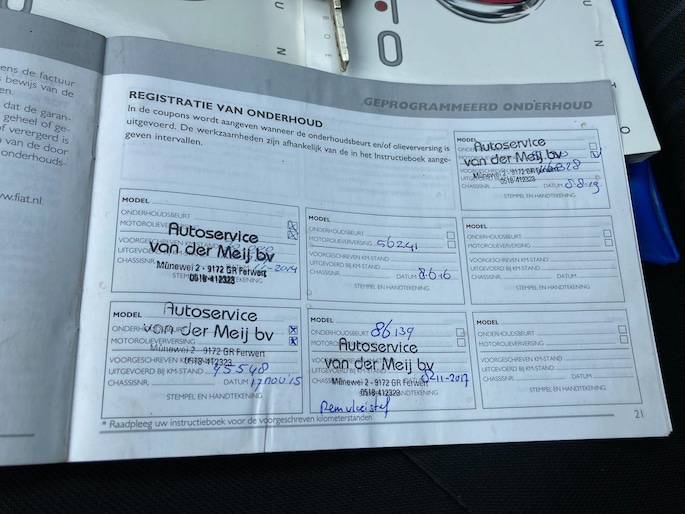 ens de factuur
s bewijs van de
en.
dat de garan-
geheel of ge-
f verergerd is
n van de door
onderhouds-
w.fiat.nl.
REGISTRATIE VAN ONDERHOUD
GEPROGRAMMEERD ONDERHOUD
In de coupons wordt aangeven wanneer de onderhoudsbeurt en/of olieverversing is
uitgevoerd. De werkzaamheden zijn afhankelijk van de in het Instructieboek aange-
geven intervallen.
MODEL
Autoservice
van der Meij bv
Münewei 2 - 9172 GR Ferwert
0518-412323
CHASSISNR. DATUM 8-8-19
STEMPEL EN HANDTEKENING
MODEL
ONDERHOUDSBEURT
MOTOROLIEVERVERSING
Autoservice
VOORGESCHREVEN KM-STAND
van der Meij bv
UITGEVOERD
CHASSISNR.
Münewei 2 - 9172 GR Ferwert
0518-412323
MODEL
ONDERHOUDSBEURT
MOTOROLIEVERVERSING 56241
VOORGESCHREVEN KM-STAND
UITGEVOERD BIJ KM-STAND
CHASSISNR. DATUM 8616
STEMPEL EN HANDTEKENING
MODEL
ONDERHOUDSBEURT
MOTOROLIEVERVERSING
VOORGESCHREVEN KM-STAND
UITGEVOERD BIJ KM-STAND
CHASSISNR. DATUM
STEMPEL EN HANDTEKENING
MODEL
Autoservice
van der Meij bv
MOTOROLIEVERVERSING
Münewei 2 - 9172 GR Ferwert
0518-412323
UITGEVOERD BIJ KM-STAND 45548
CHASSISNR. DATUM 17 nov '15
STEMPEL EN HANDTEKENING
MODEL
86139
ONDERHOUDSBEURT
Autoservice
van der Meij bv
Münewei 2 - 9172 GR Ferwert
0518-412323
CHASSISNR. -11-2017
Remvloeistof
MODEL
ONDERHOUDSBEURT
MOTOROLIEVERVERSING
VOORGESCHREVEN KM-STAND
UITGEVOERD BIJ KM-STAND
CHASSISNR. DATUM
STEMPEL EN HANDTEKENING
* Raadpleeg uw instructieboek voor de voorgeschreven kilometerstanden
21